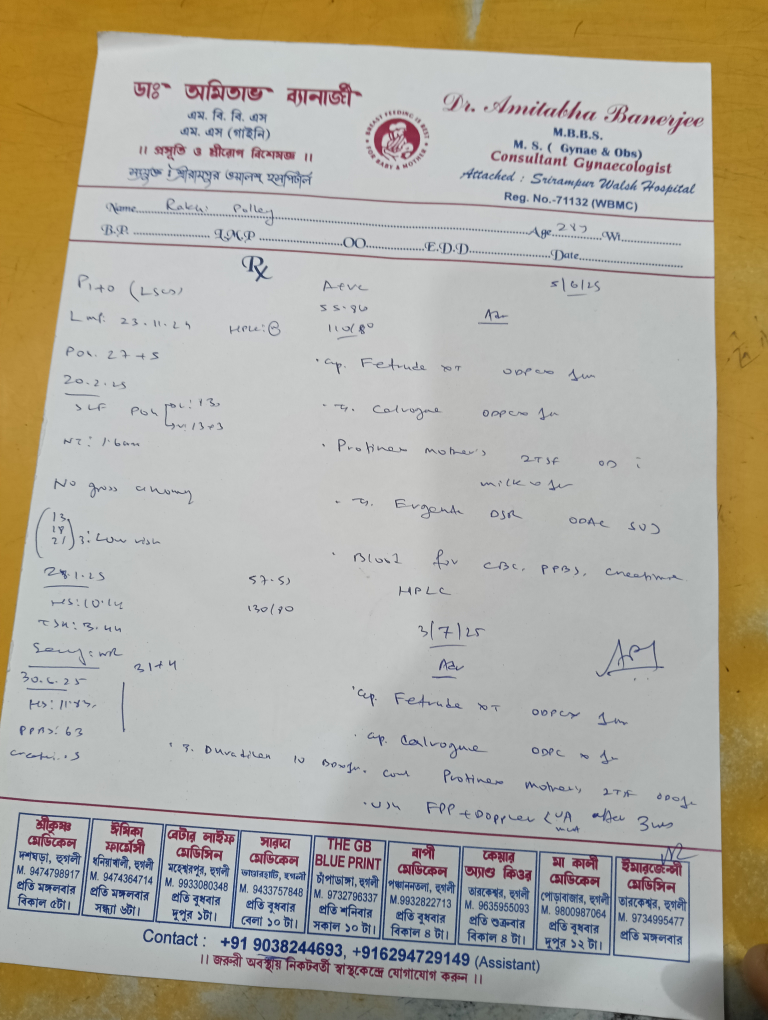 ডাঃ অমিতাভ ব্যানার্জী
এম. বি. বি. এস
এম. এস (গাইনি)
।। প্রসূতি ও স্ত্রীরোগ বিশেষজ্ঞ ।।
সংযুক্ত : শ্রীরামপুর ওয়ালশ হসপিটাল
BREAST FEEDING IS BEST FOR BABY & MOTHER
Dr. Amitabha Banerjee
M.B.B.S.
M. S. ( Gynae & Obs)
Consultant Gynaecologist
Attached : Srirampur Walsh Hospital
Reg. No.-71132 (WBMC)
Name Rakhi Polley Age Wt
B.P. L.M.P OO E.D.D Date
Rx
P1+0 (LSCS)
LMP. 23.11.24
POG. 27+5
20.2.25
SLF POG
NT: 1.6mm
No gross anomaly
13
18
21 : Low risk
28.1.25
HB: 10.14
TSH: 3.44
Serology: NR
30.6.25
PPBS: 63
55.96
110/80
57.5
130/90
31+4
5/6/25
Adv
Cap. Fetrude XT ODPC x 1m
T. Calvogue ODPC x 1m
Protinex mother's 2TSF OD
milk x 1m
DSR ODAC SOS
Blood for CBC, PPBS, creatinine
HPLC
3/7/25
Adv
Cap. Fetrude XT ODPC x 1m
Cap. Calvogue ODPC x 1m
T. Duvadilan 10 Cont Protinex mother's 2TSF
USG FPP + Doppler UA after 3 wks
শ্রীকৃষ্ণ মেডিকেল
দশঘড়া, হুগলী
M. 9474798917
প্রতি মঙ্গলবার
বিকাল ৫টা।
ঈষিকা ফার্মেসী
ধনিয়াখালী, হুগলী
M. 9474364714
প্রতি মঙ্গলবার
সন্ধ্যা ৬টা।
বেটার লাইফ মেডিসিন
মহেশ্বরপুর, হুগলী
M. 9933080348
প্রতি বুধবার
দুপুর ১টা।
সারদা মেডিকেল
M. 9433757848
প্রতি বুধবার
বেলা ১০ টা।
THE GB BLUE PRINT
চাঁপাডাঙ্গা, হুগলী
M. 9732796337
প্রতি শনিবার
সকাল ১০ টা।
বাপী মেডিকেল
পঞ্চাননতলা, হুগলী
M. 9932822713
প্রতি বুধবার
বিকাল ৪ টা।
কেয়ার অ্যাণ্ড কিওর
তারকেশ্বর, হুগলী
M. 9635955093
প্রতি শুক্রবার
বিকাল ৪ টা।
মা কালী মেডিকেল
পোড়াবাজার, হুগলী
M. 9800987064
প্রতি বুধবার
দুপুর ১২ টা।
ইমারজেন্সী মেডিসিন
তারকেশ্বর, হুগলী
M. 9734995477
প্রতি মঙ্গলবার
Contact : +91 9038244693, +916294729149 (Assistant)
।। জরুরী অবস্থায় নিকটবর্তী স্বাস্থ্যকেন্দ্রে যোগাযোগ করুন ।।